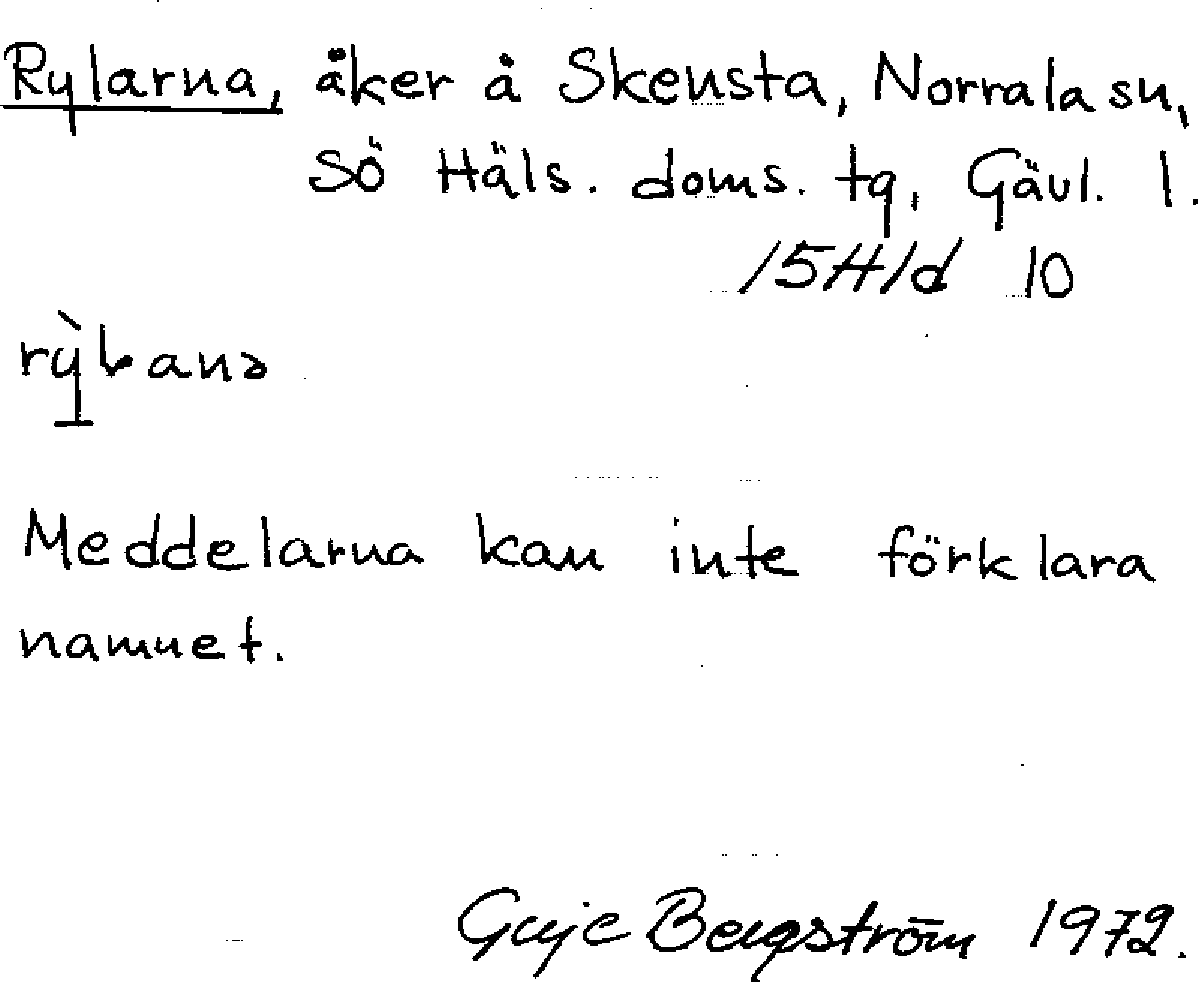 Rylarna, åker å Skensta, Norrala sn,
SÖ Häls. doms. tg, Gävl. l.
15H1d 10
Meddelarna kan inte förklara
namnet.
Bergström 1972.